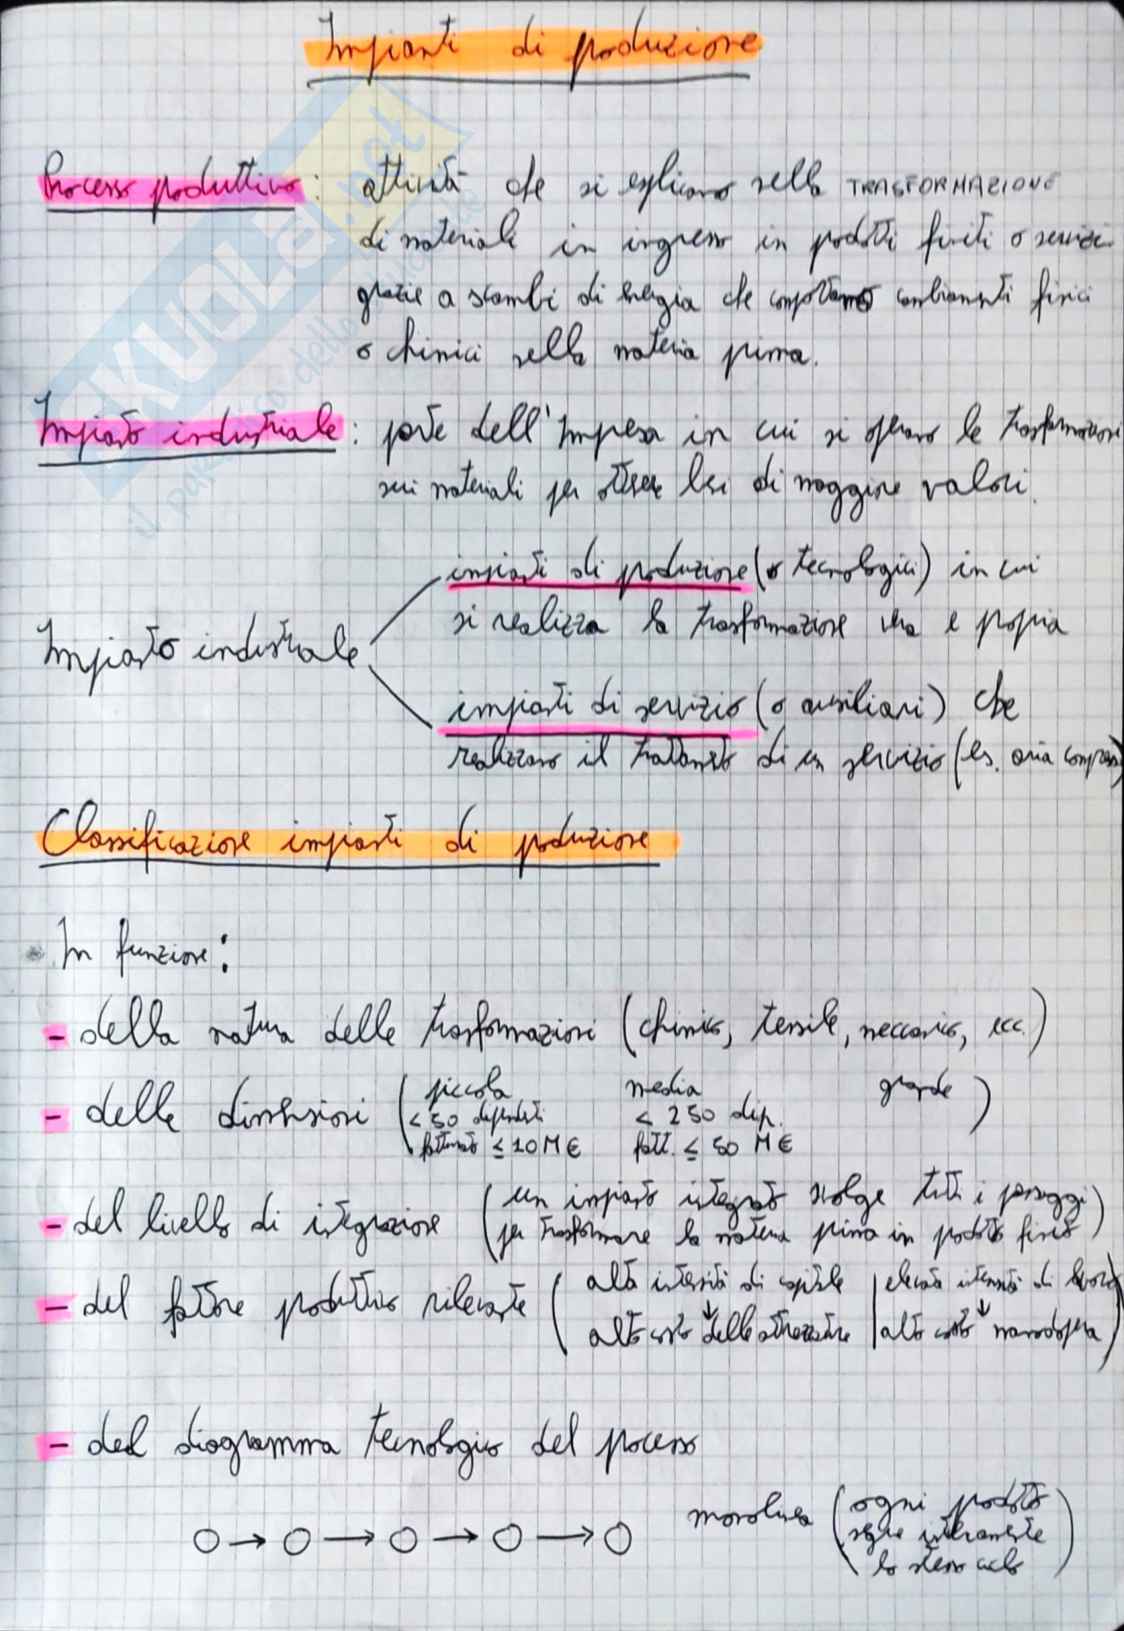 Impianti di produzione
Processo produttivo: attività che si esplicano nella TRASFORMAZIONE
di materiali in ingresso in prodotti finiti o servizi
grazie a scambi di energia che comportano cambiamenti fisici
o chimici nella materia prima.
Impianto industriale: parte dell'impresa in cui si operano le trasformazioni
sui materiali per ottenere beni di maggiore valori.
impianti di produzione (o tecnologici) in cui
si realizza la trasformazione vera e propria
Impianto industriale
impianti di servizio (o ausiliari) che
realizzano il trattamento di un servizio (es. aria compressa)
Classificazione impianti di produzione
In funzione:
- della natura delle trasformazioni (chimico, tessile, meccanico, ecc.)
- delle dimensioni (piccola media grande)
< 50 dipendenti < 250 dip.
fatturato ≤ 10 M€ fatt. ≤ 50 M€
- del livello di integrazione (un impianto integrato svolge tutti i passaggi
per trasformare la materia prima in prodotto finito)
- del fattore produttivo rilevante (alta intensità di capitale | elevata intensità di lavoro
↓ ↓
alto costo delle attrezzature | alto costo manodopera)
- del diagramma tecnologico del processo
○ → ○ → ○ → ○ → ○ monolinea (ogni prodotto
segue interamente
lo stesso ciclo)
SKUOLA.net